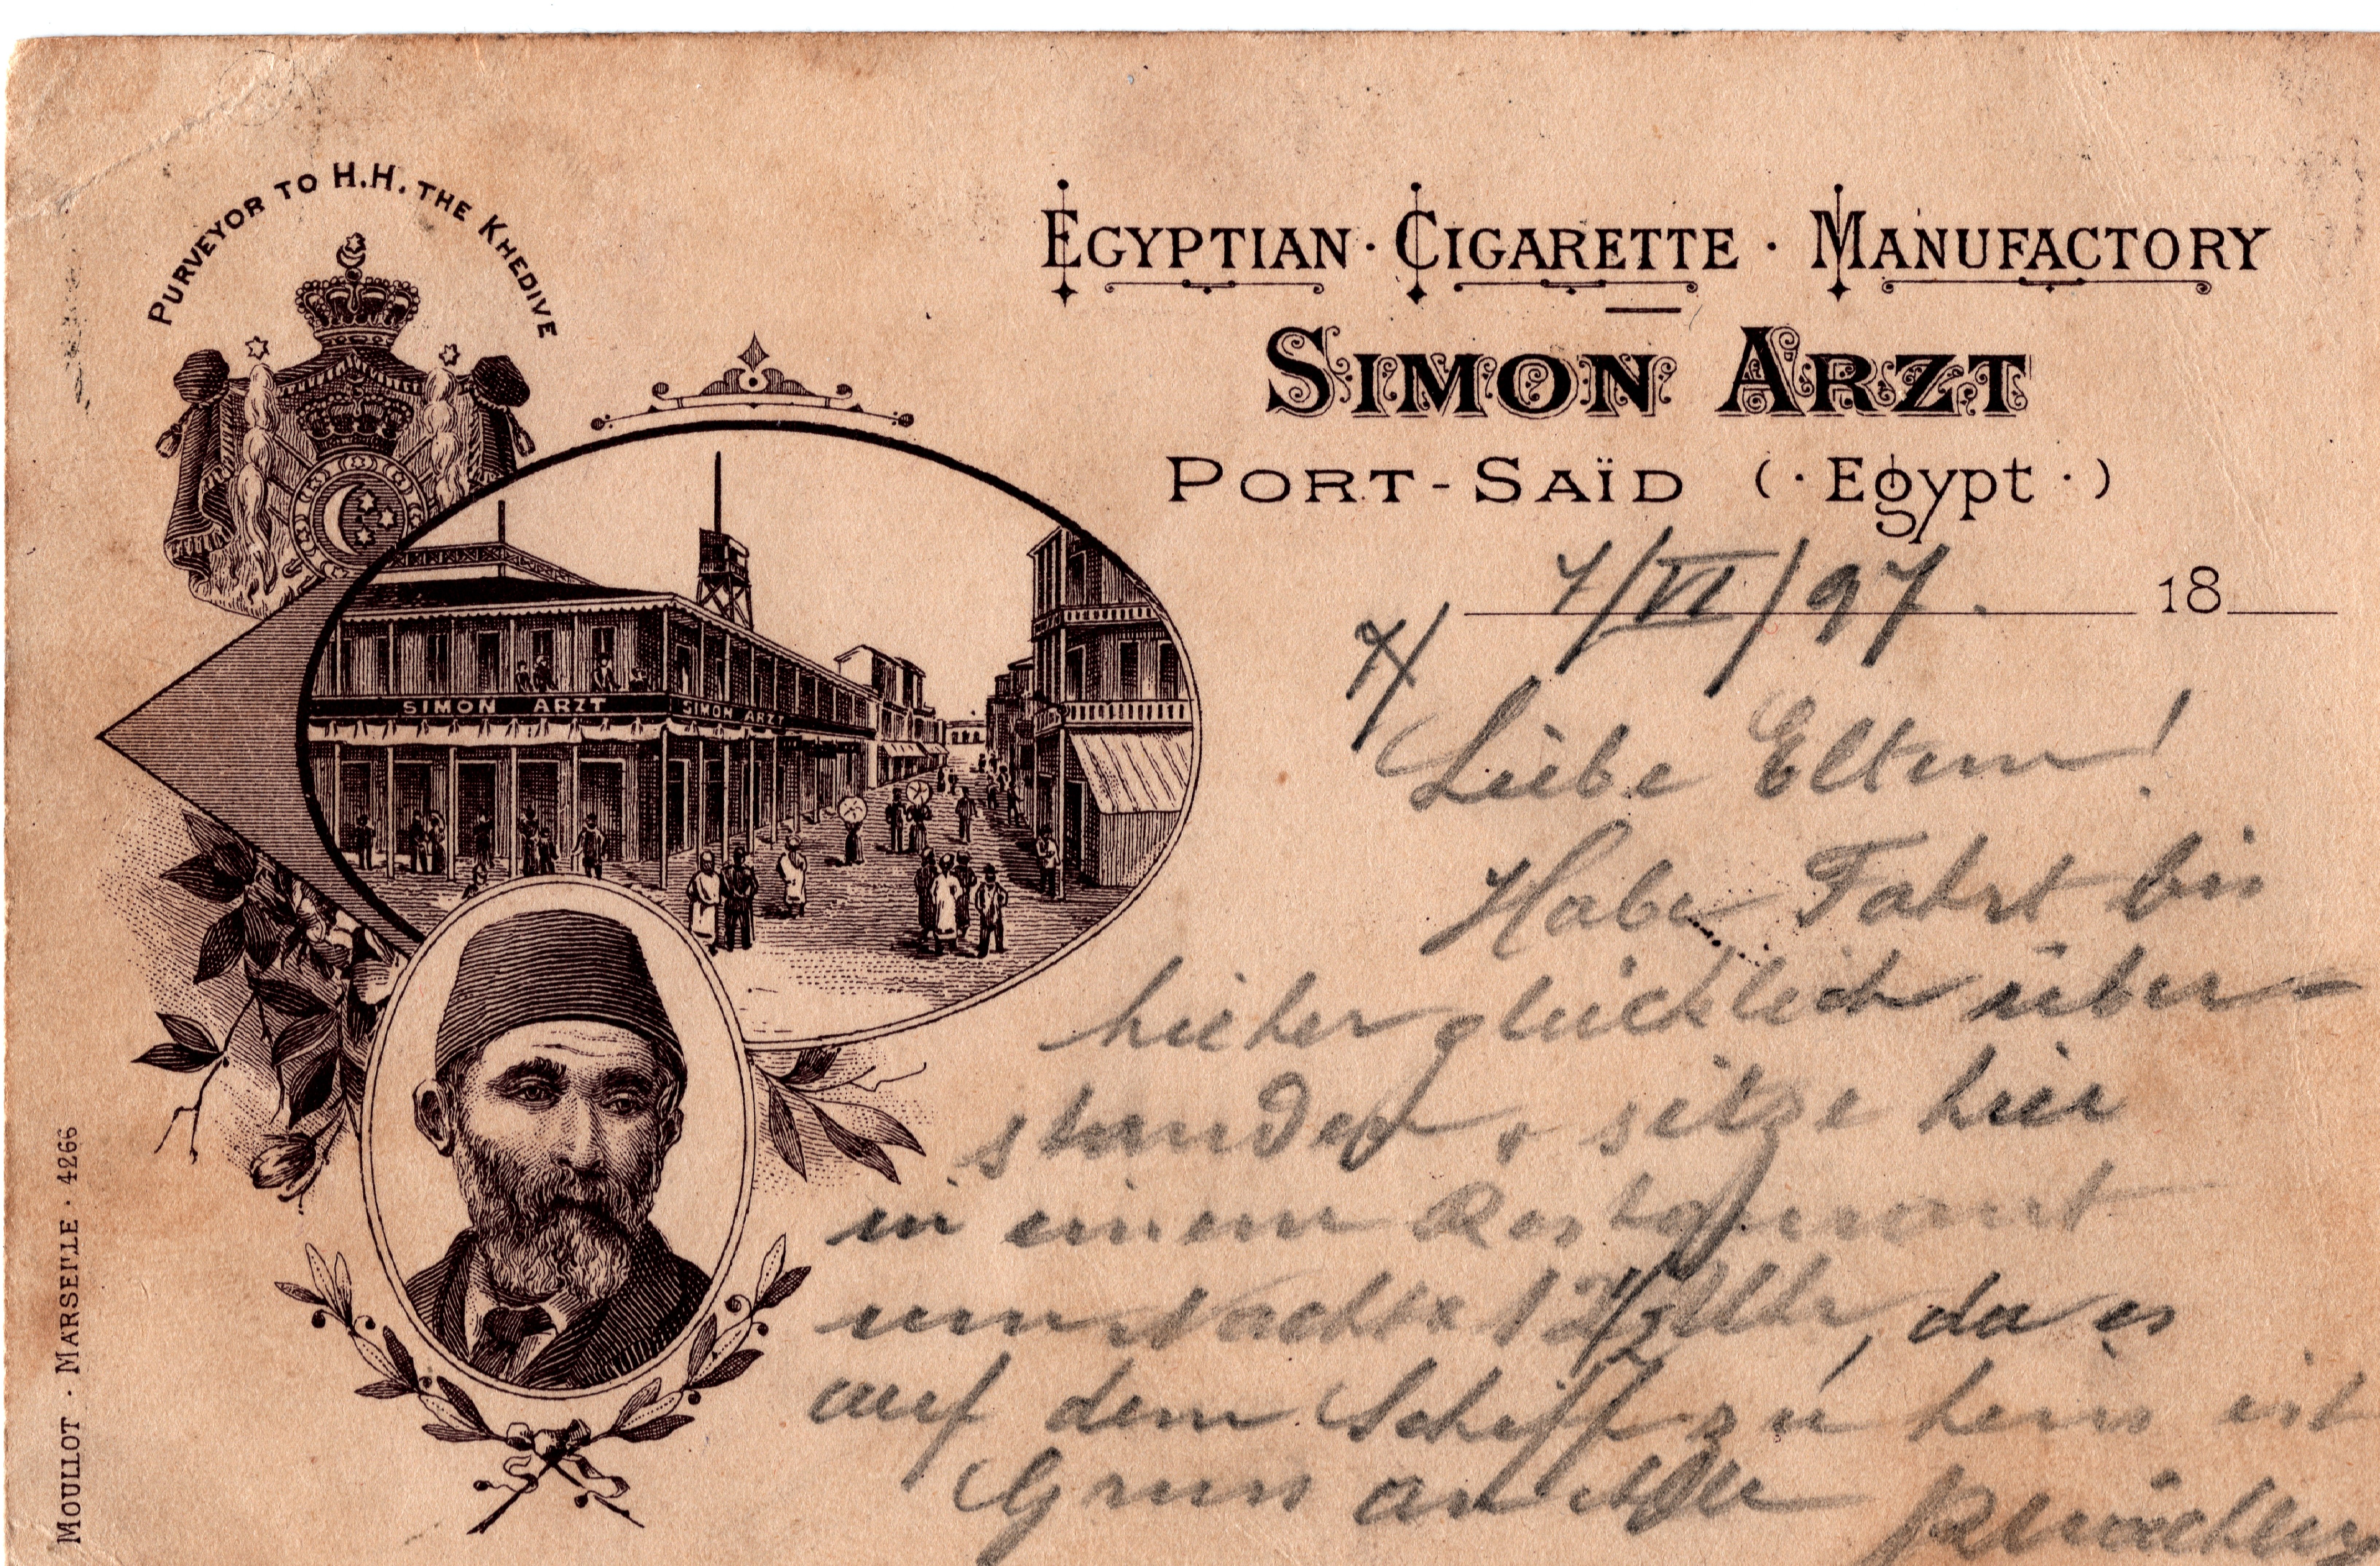 PURVEYOR TO H.H. THE KHEDIVE
EGYPTIAN · CIGARETTE · MANUFACTORY
SIMON ARZT
PORT-SAÏD (· Egypt ·)
7/VI/97. 18
SIMON ARZT
SIMON ARZT
Liebe Eltern!
Habe Fahrt bis
hieher glücklich über-
standen, sitze hier
in einem Restaurant
um Nachts 12 1/2 Uhr, da es
auf dem Schiff zu heiss ist
Gruss an Alle
MOULLOT · MARSEILLE · 4266